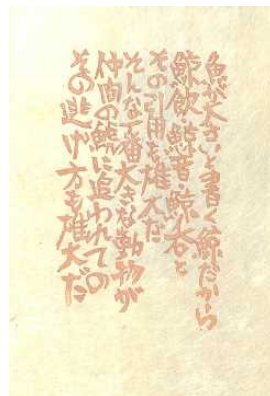 魚が大きいと書く鯨だから
鯨飲・鯨音・鯨呑と
その引用も雄大だ
そんな一番大きな動物が
仲間の鯱に追われての
その逃げ方も雄大だ